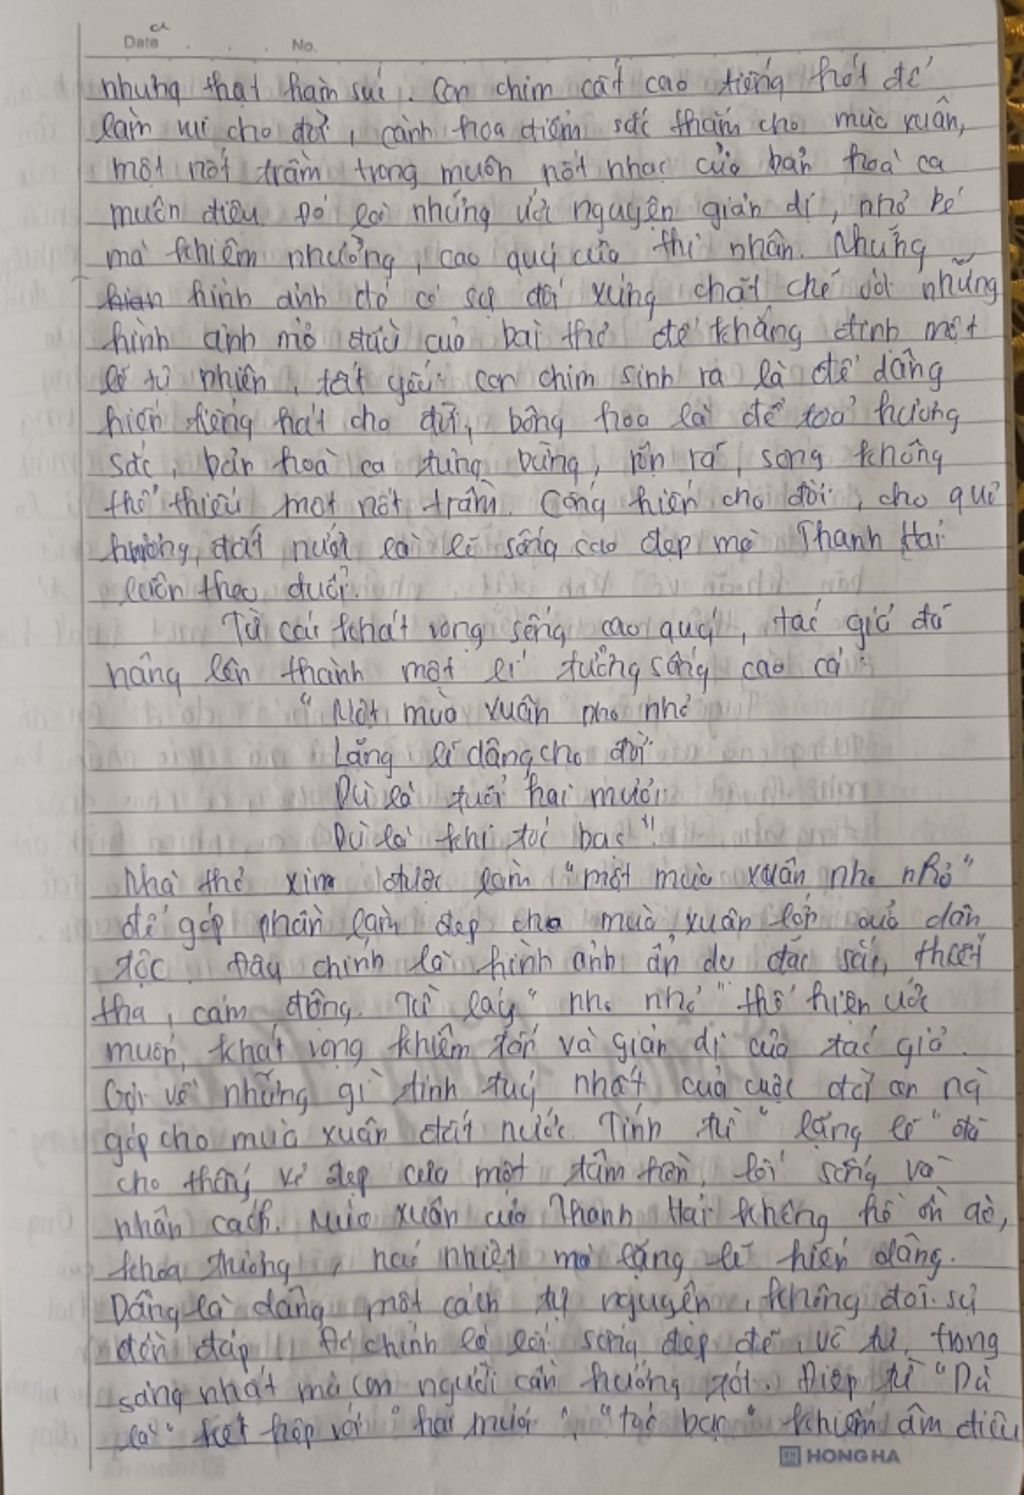 Date No.
nhưng thật hàm súc. Con chim cất cao tiếng hót để
làm vui cho đời, cành hoa điểm sắc thắm cho mùa xuân,
một nốt trầm trong muôn nốt nhạc của bản hoà ca
muôn điệu. Đó là những ước nguyện giản dị, nhỏ bé
mà khiêm nhường, cao quý của thi nhân. Những
hình ảnh đó có sự đối xứng chặt chẽ với những
hình ảnh mở đầu của bài thơ để khẳng định một
lẽ tự nhiên, tất yếu: con chim sinh ra là để dâng
hiến tiếng hát cho đời, bông hoa là để toả hương
sắc, bản hoà ca tưng bừng, rộn rã, song không
thể thiếu một nốt trầm. Cống hiến cho đời, cho quê
hương, đất nước là lẽ sống cao đẹp mà Thanh Hải
luôn theo đuổi.
Từ cái khát vọng sống cao quý, tác giả đã
nâng lên thành một lí tưởng sống cao cả:
"Một mùa xuân nho nhỏ
Lặng lẽ dâng cho đời
Dù là tuổi hai mươi
Dù là khi tóc bạc"!
Nhà thơ xin được làm "một mùa xuân nho nhỏ"
để góp phần làm đẹp cho mùa xuân lớn của dân
tộc. Đây chính là hình ảnh ẩn dụ đặc sắc, thiết
tha, cảm động. Từ láy "nho nhỏ" thể hiện ước
muốn, khát vọng khiêm tốn và giản dị của tác giả.
Gợi về những gì tinh tuý nhất của cuộc đời
góp cho mùa xuân đất nước. Tính từ "lặng lẽ" đã
cho thấy vẻ đẹp của một tâm hồn, lối sống và
nhân cách. Mùa xuân của Thanh Hải không hề ồn ào,
khoa trương, náo nhiệt mà lặng lẽ hiến dâng.
Dâng là dâng một cách tự nguyện, không đòi sự
đền đáp. Đó chính là lối sống đẹp đẽ, vô tư, trong
sáng nhất mà con người cần hướng tới. Điệp từ "Dù
là" kết hợp với "hai mươi", "tóc bạc" khiến âm điệu
HONG HA